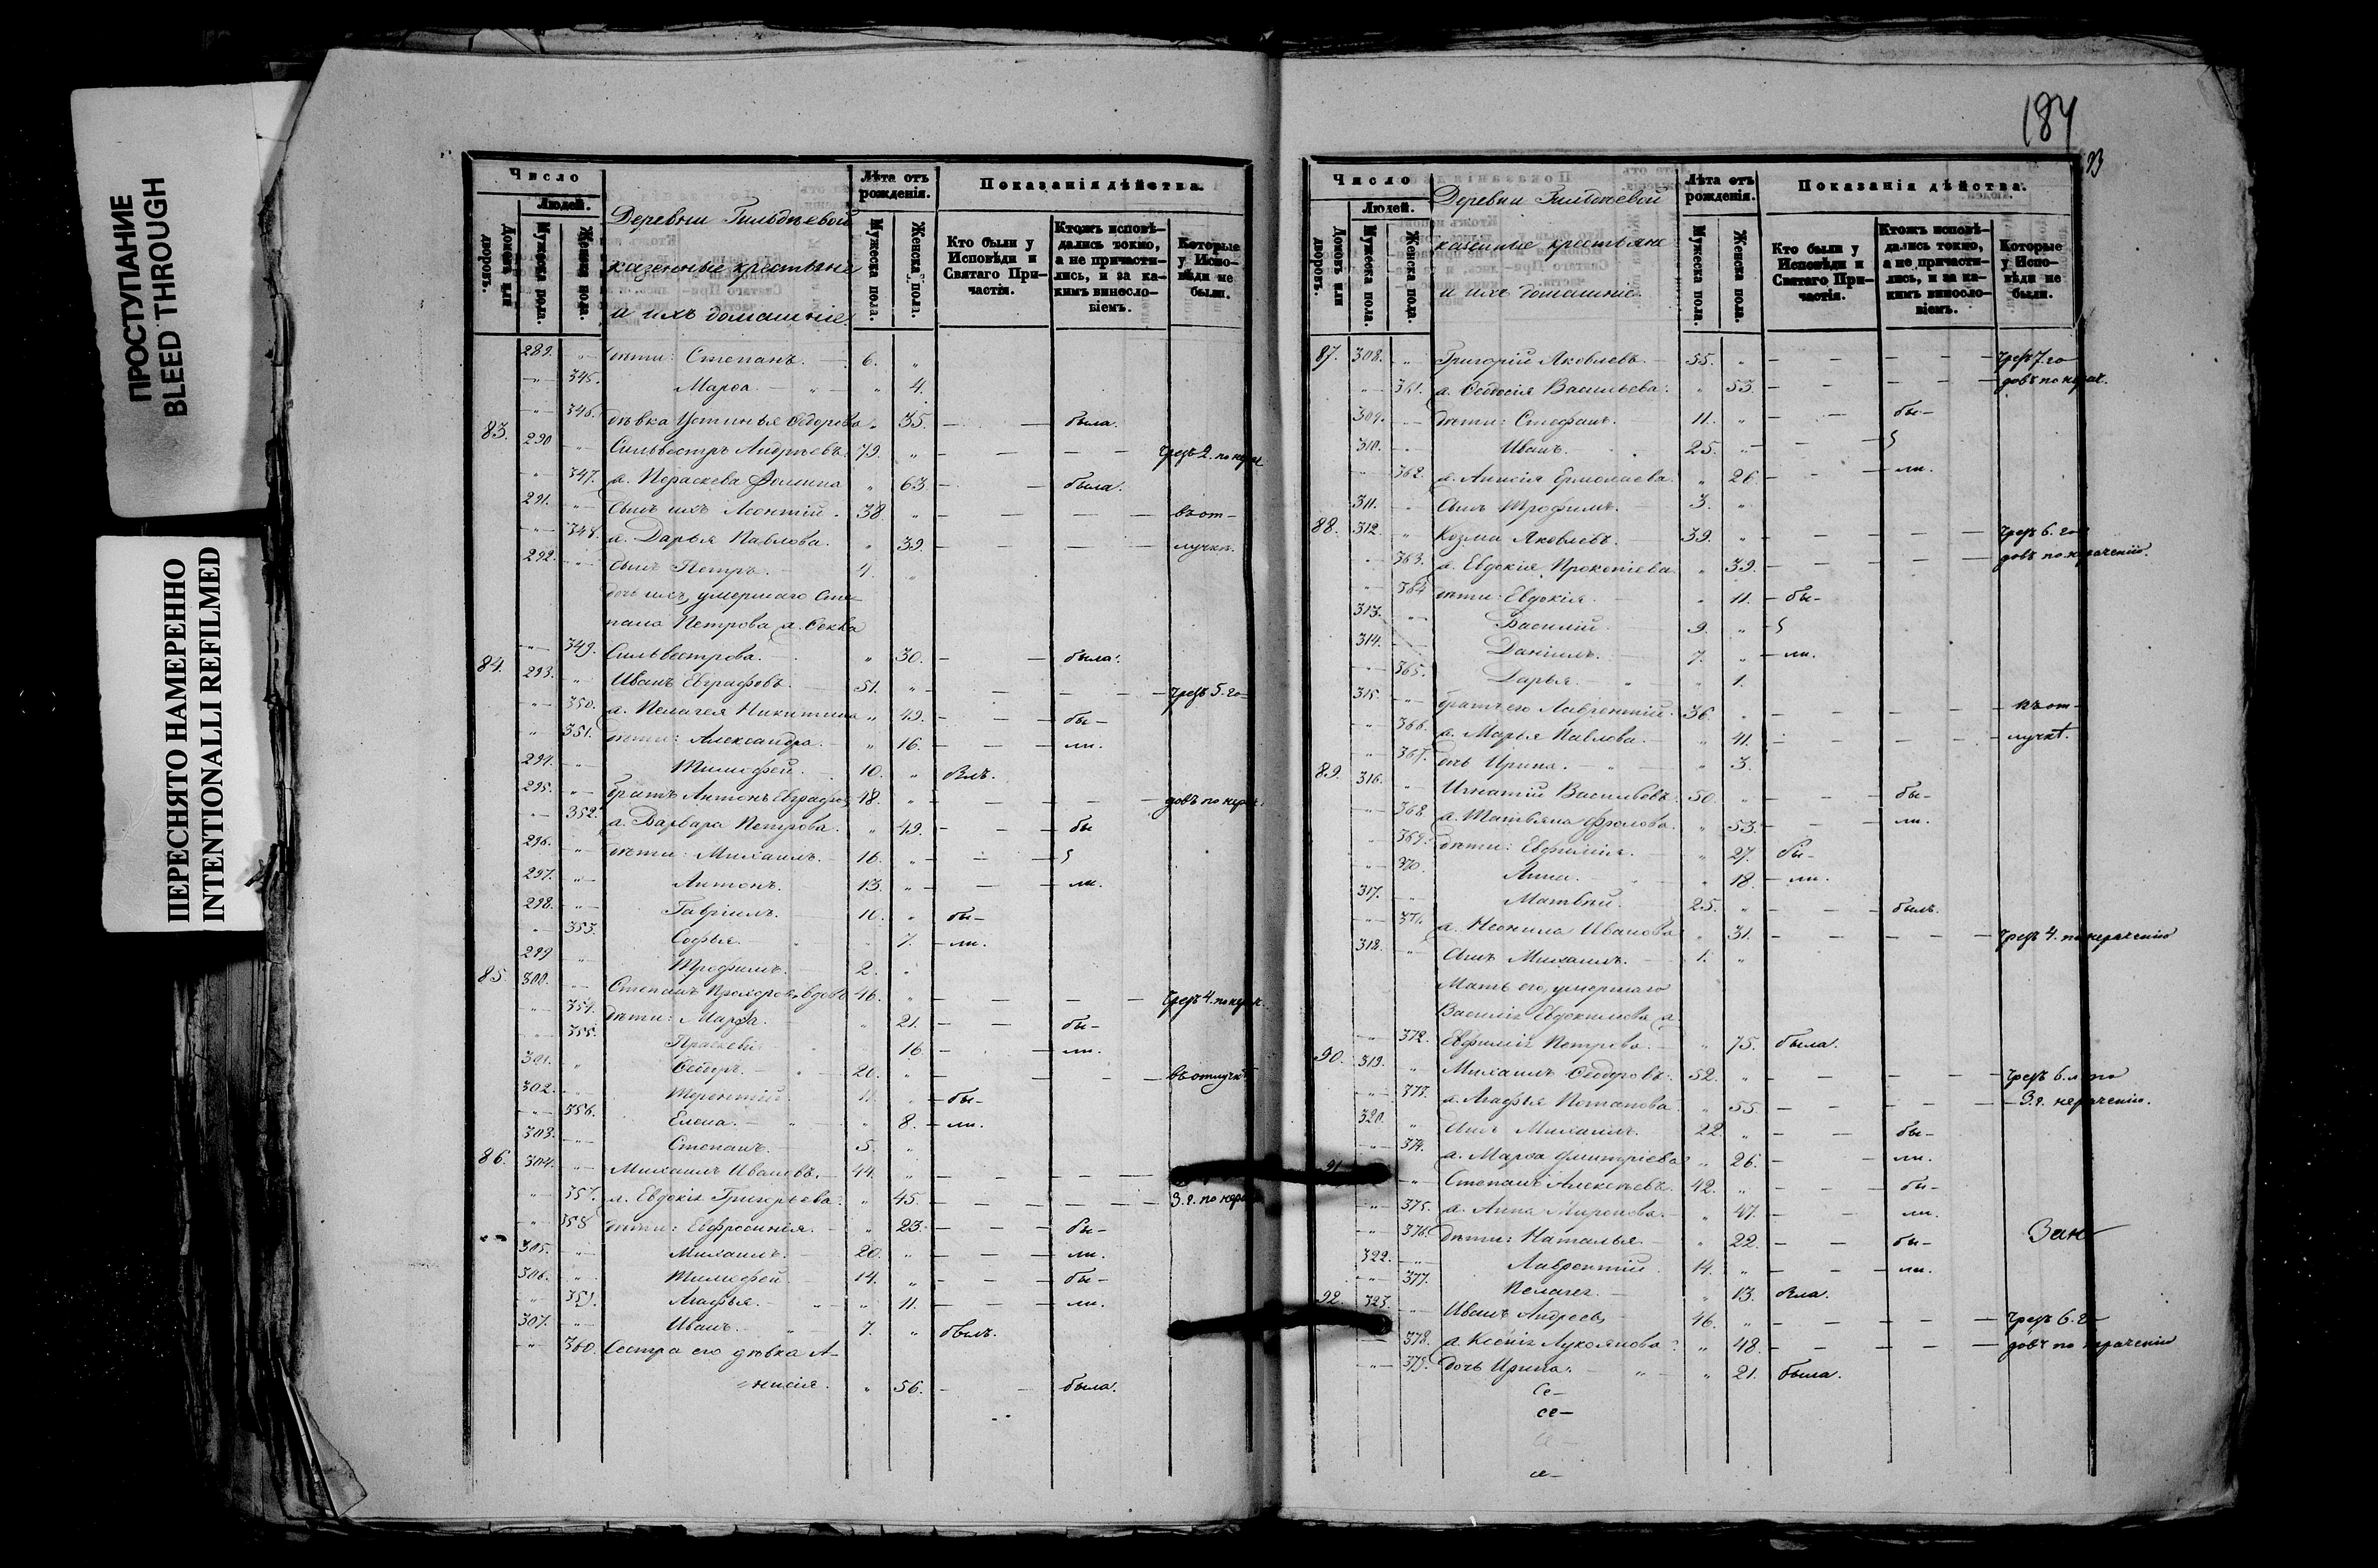 ПРОСТУПАНИЕ
BLEED THROUGH
ПЕРЕСНЯТО НАМЕРЕННО
INTENTIONALLI REFILMED
Число
Людей.
Домовъ или дворовъ.
Мужеска пола.
Женска пола.
Деревни
казенные крестьяне
и ихъ домашніе.
Лѣта отъ рожденія.
Мужеска пола.
Женска пола.
Показанія дѣйства.
Кто были у Исповѣди и Святаго Причастія.
Ктожъ исповѣдались токмо, а не причастились, и за какимъ винословіемъ.
Которые у Исповѣди не были.
289. дѣти: Степанъ. 6.
345. Марѳа. 4.
346. дѣвка Устинья Ѳедорова 35. была.
83. 290 Сильвестръ Андрѣевъ. 79. чрезъ 2. по нерач
347. ж. Параскева 63 была.
291. Сынъ ихъ Леонтій. 38. въ от-
348. ж. Дарья Павлова. 39. лучкѣ.
292. Сынъ Петръ. 4.
дочь ихъ, умершаго Сте-
пана Петрова ж. Ѳекла
349. Сильвестрова. 30. была.
84. 293. Иванъ Евграфовъ. 51. чрезъ 5. го-
350. ж. Пелагея Никитина 49. бы-
351. дѣти: Александра. 16. ли.
294. Тимофей. 10. былъ.
295. братъ Антонъ Евграфов 48. довъ по нерач.
352. ж. Варвара Петрова. 49. бы
296. дѣти: Михаилъ. 16.
297. Антонъ. 13. ли.
298. Гавріилъ. 10. бы-
353. Софья. 7. ли.
299 Трофимъ. 2.
85. 300. Степанъ вдовъ 46. чрезъ 4. по нерач.
354. дѣти: Марѳа. 21. бы-
355. 16 ли.
301. Ѳедоръ. 20. въ отлучкѣ
302. Терентій. бы-
356. Елена. 8. ли.
303. Степанъ. 5.
86. 304. Михаилъ Ивановъ. 44.
357. ж. Евдокія Григорьева. 45. 3. г. по нерач
358 дѣти: Евфросинія. 23. бы-
305. Михаилъ. 20. ли.
306. Тимофей. 14. бы-
359. Агафья. 11. ли.
307. Иванъ. 7. былъ.
360. Сестра его дѣвка А-
нисія. 56. была.
184
93
Число
Людей.
Домовъ или дворовъ.
Мужеска пола.
Женска пола.
Деревни
казенные крестьяне
и ихъ домашніе.
Лѣта отъ рожденія.
Мужеска пола.
Женска пола.
Показанія дѣйства.
Кто были у Исповѣди и Святаго Причастія.
Ктожъ исповѣдались токмо, а не причастились, и за какимъ винословіемъ.
Которые у Исповѣди не были.
87. 308. Григорій Яковлевъ. 55. чрезъ 7. го
361. ж. Ѳеодосія Васильева. 53. довъ по нерач.
309. дѣти: Стефанъ. 11. бы-
310. Иванъ. 25.
362. ж. Анисія Ермолаева. 26. ли.
311. Сынъ Трофимъ. 3.
88. 312. Козма Яковлевъ. 39. чрезъ 6. го
363. ж. Евдокія Прокопіева. 39. довъ по нераченію.
364 дѣти: Евдокія. 11. бы-
313. Василій. 9.
314. Даніилъ. 7. ли.
365. Дарья. 1.
315. братъ его Лаврентій. 36. въ от-
366. ж. Марья Павлова. 41. лучкѣ.
367. дочь Ирина. 3.
89. 316. Игнатій Васильевъ. 50. бы-
368. ж. Татьяна Фролова. 53. ли.
369. дѣти: Евфимія. 27. бы-
370. Анна. 18. ли.
317. Матвѣй. 25. былъ.
371. ж. Неонила Иванова 31. чрезъ 4. по нераченію
318. Сынъ Михаилъ. 1.
Мать его, умершаго
Василія Евдокимова ж.
372. Евфимія Петрова. 75. была.
90. 319. Михаилъ Ѳедоровъ. 52. чрезъ 6. л по
373. ж. Агафья Потапова. 55. 3. г. нераченію.
320. Сынъ Михаилъ. 22. бы-
374. ж. Марѳа Дмитріева. 26. ли.
91 Степанъ Алексѣевъ. 42. бы-
375. ж. Анна Миронова. 47. ли.
376. дѣти: Наталья. 22. бы-
322. Лаврентій. 14. ли.
377. Пелагея. 13. была.
92. 323. Иванъ Андреевъ 46. чрезъ 6. го
378. ж. Ксенія Лукоянова. 48. довъ по нераченію
379. дочь Ирина. 21. была.
Се-
се-
се-